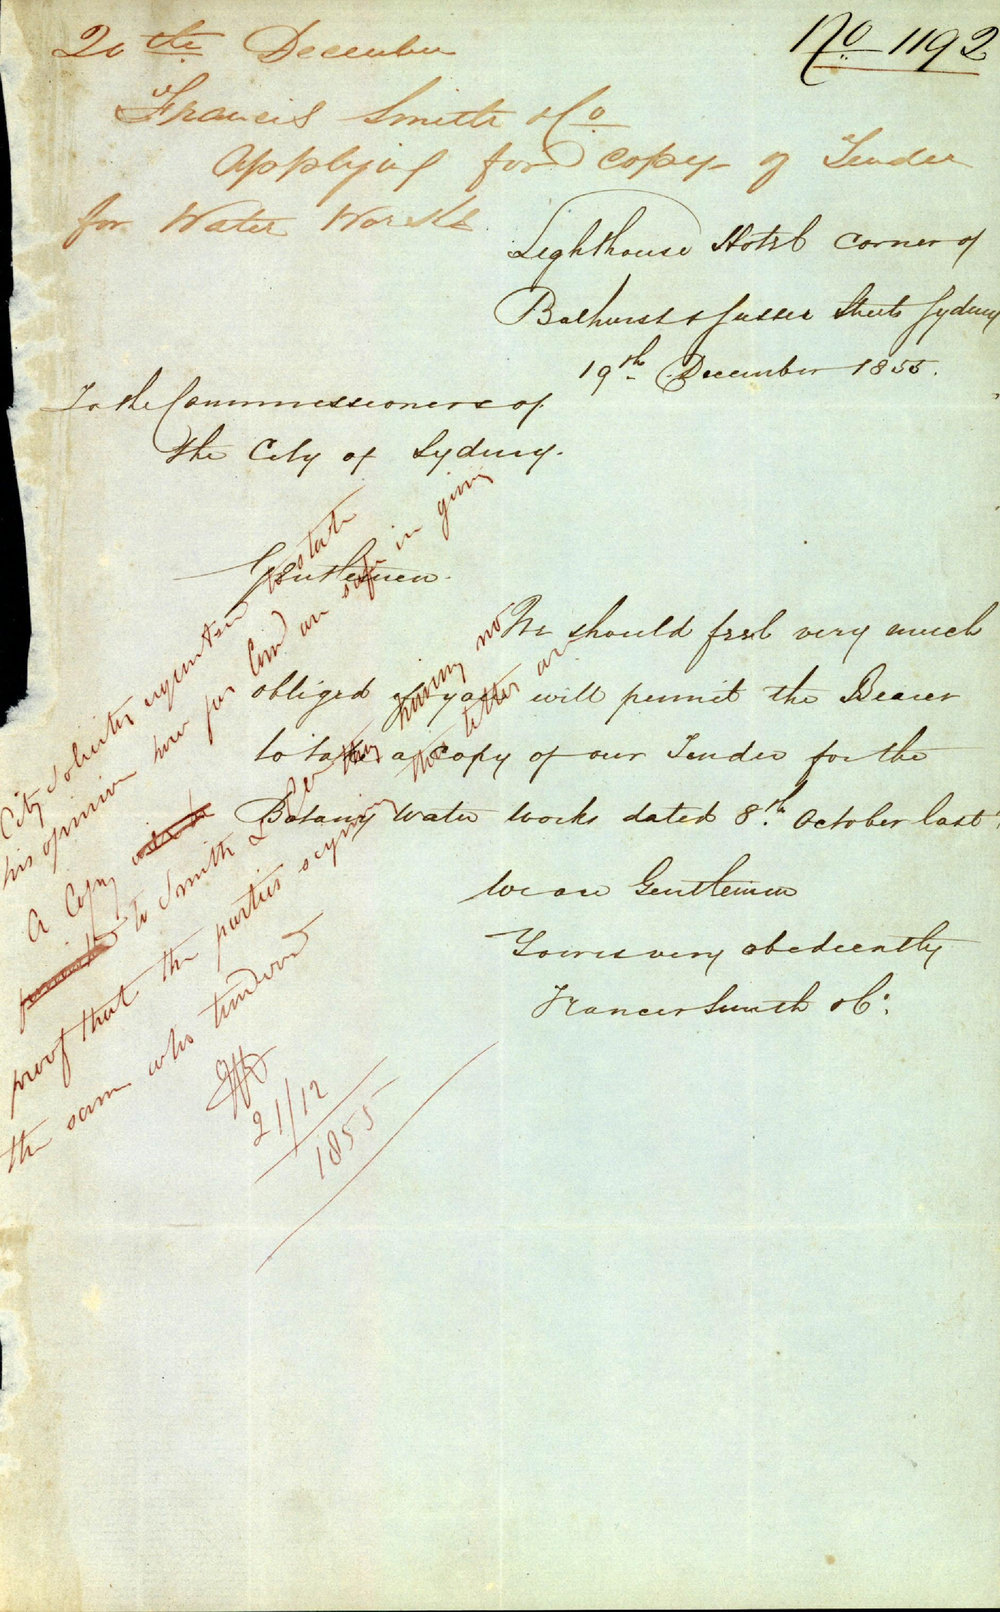 No 1192
20th December
Francis Smith & Co
applying for copy of Tender
for Water Works
Lighthouse Hotel Corner of
Bathurst & Sussex Streets Sydney
19th December 1855.
To the Commissioners of
the City of Sydney.
Gentlemen.
We should feel very much
obliged if you will permit the Bearer
to take a copy of our Tender for the
Botany Water Works dated 8th October last.
We are Gentlemen
Yours very obediently
Francis Smith & Co:
City Solicitor requested to state
his opinion how far Com are safe in giving
a Copy
to Smith & Co they having no
proof that the parties signing the letter are
the same who tendered
21/12
1855